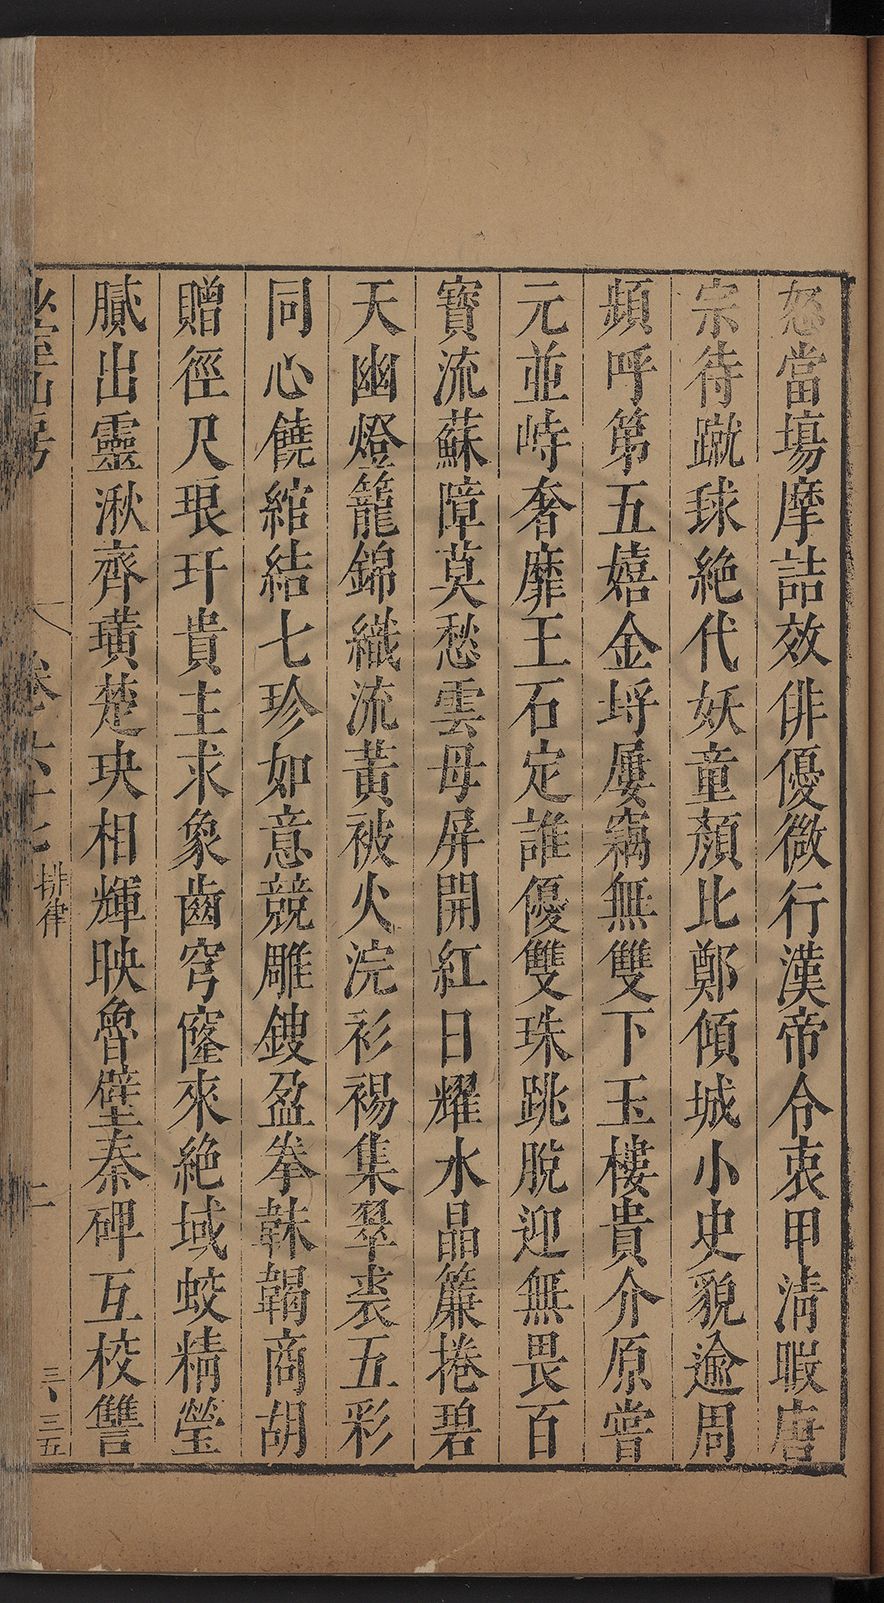 怒當塲摩詰效俳優微行漢帝令衷甲清暇唐
宗待蹴球絶代妖童顏比鄭傾城小史貌逾周
頻呼第五嬉金埒屢竊無雙下玉樓貴介原嘗
元並峙奢靡王石定誰優雙珠跳脫迎無畏百
寳流蘇障莫愁雲母屏開紅日耀水晶簾捲碧
天幽燈籠錦織流黃被火浣衫裼集翠裘五彩
同心饒綰結七珍如意競雕鎪盈拳韎鞨商胡
贈徑尺琅玕貴主求象齒穹窿來絶域蛟精瑩
膩出靈湫齊璜楚玦相輝映魯壁秦碑互校讐
山房 卷六十七 排律 二 三、三五